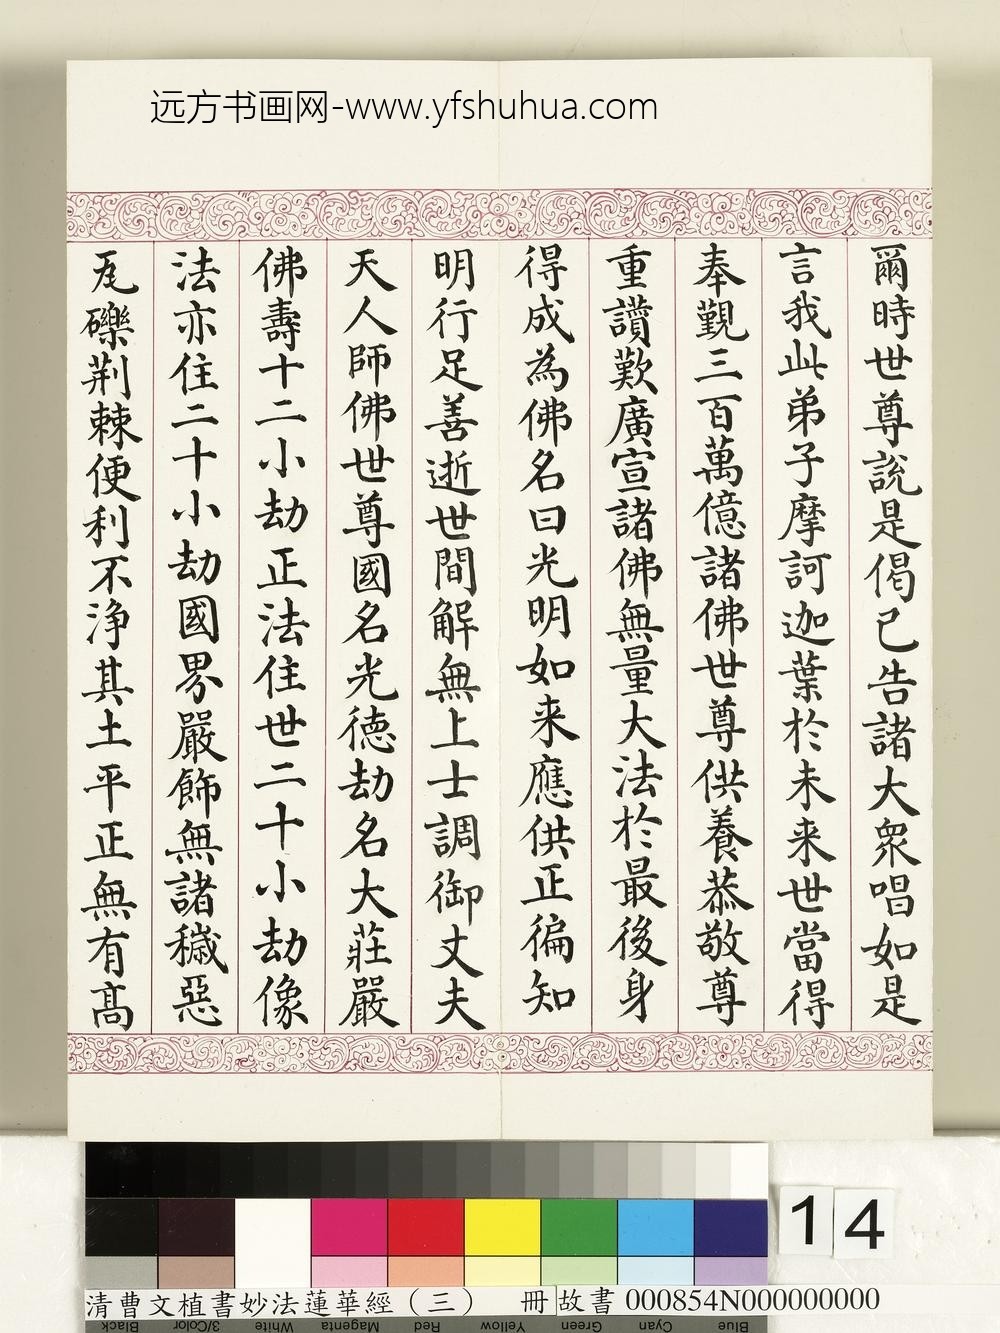 远方书画网-www.yfshuhua.com
爾時世尊說是偈已告諸大眾唱如是
言我此弟子摩訶迦葉於未来世當得
奉覲三百萬億諸佛世尊供養恭敬尊
重讚歎廣宣諸佛無量大法於最後身
得成為佛名曰光明如来應供正徧知
明行足善逝世間解無上士調御丈夫
天人師佛世尊國名光德劫名大莊嚴
佛壽十二小劫正法住世二十小劫像
法亦住二十小劫國界嚴飾無諸穢惡
瓦礫荆棘便利不淨其土平正無有高
14
清曹文植書妙法蓮華經（三） 冊 故書 000854N000000000
Black 3/Color White Magenta Red Yellow Green Cyan Blue